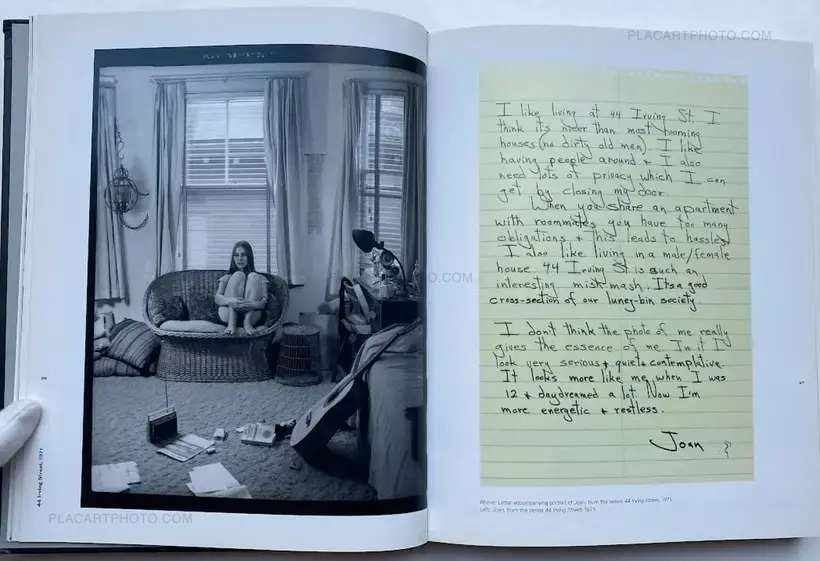 PLACARTPHOTO.COM
I like living at 44 Irving St. I
think it's nicer than most rooming
houses (no dirty old men). I like
having people around + I also
need lots of privacy which I can
get by closing my door.
When you share an apartment
with roommates you have too many
obligations + this leads to hassles.
I also like living in a male/female
house. 44 Irving St. is such an
interesting mish-mash. It's a good
cross-section of our luney-bin society.
I don't think the photo of me really
gives the essence of me. In it I
look very serious + quiet + contemplative.
It looks more like me when I was
12 + daydreamed a lot. Now I'm
more energetic + restless.
Joan
Above: Letter accompanying portrait of Joan, from the series 44 Irving Street, 1971
Left: Joan, from the series 44 Irving Street, 1971
44 Irving Street, 1971
PLACARTPHOTO.COM
PLACARTPHOTO.COM